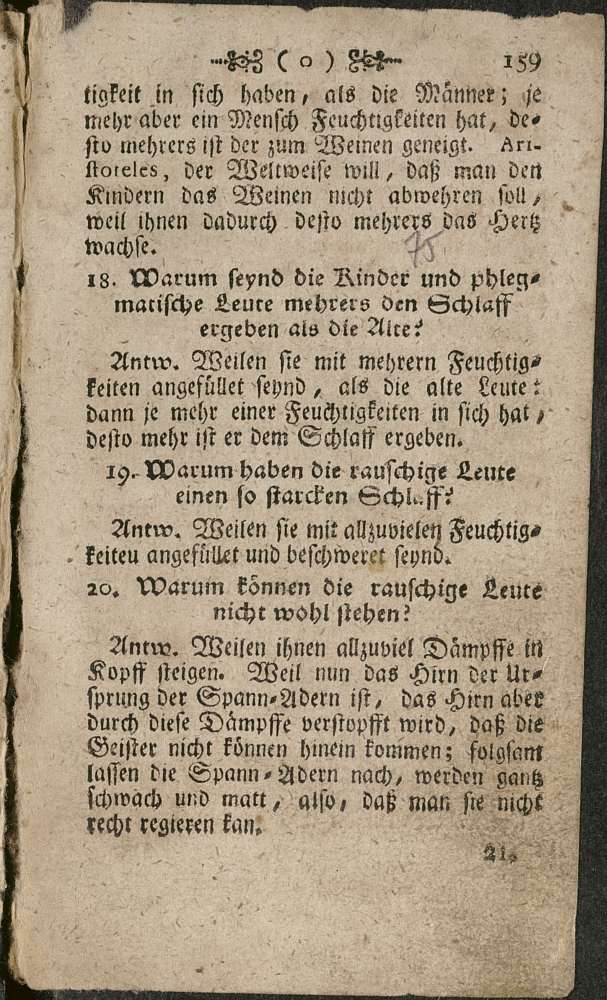 ( o ) 159
tigkeit in sich haben, als die Männer; je
mehr aber ein Mensch Feuchtigkeiten hat, de-
sto mehrers ist der zum Weinen geneigt. Ari-
stoteles, der Weltweise will, daß man den
Kindern das Weinen nicht abwehren soll,
weil ihnen dadurch desto mehrers das Hertz
wachse.
75.
18. Warum seynd die Kinder und phleg-
matische Leute mehrers den Schlaff
ergeben als die Alte?
Antw. Weilen sie mit mehrern Feuchtig-
keiten angefüllet seynd, als die alte Leute:
dann je mehr einer Feuchtigkeiten in sich hat,
desto mehr ist er dem Schlaff ergeben.
19. Warum haben die rauschige Leute
einen so starcken Schlaff?
Antw. Weilen sie mit allzuvielen Feuchtig-
keiteu angefüllet und beschweret seynd.
20. Warum können die rauschige Leute
nicht wohl stehen?
Antw. Weilen ihnen allzuviel Dämpffe in
Kopff steigen. Weil nun das Hirn der Ur-
sprung der Spann-Adern ist, das Hirn aber
durch diese Dämpffe verstopfft wird, daß die
Geister nicht können hinein kommen; folgsam
lassen die Spann-Adern nach, werden gantz
schwach und matt, also, daß man sie nicht
recht regieren kan.
21.